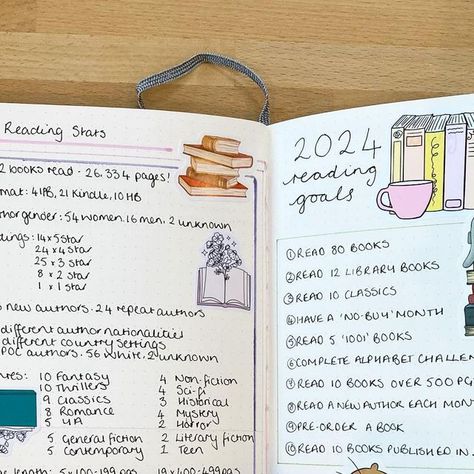 Reading Stats
2 books read - 26,334 pages!
mat: 41PB, 21 Kindle, 10 HB
hor gender: 54 women, 16 men, 2 unknown
ings: 14 x 5 star
24 x 4 star
25 x 3 star
8 x 2 star
1 x 1 star
new authors. 24 repeat authors
different author nationalities
different country settings
POC authors. 56 white. 2 unknown
res: 10 Fantasy
10 Thrillers
9 Classics
8 Romance
5 YA
5 General fiction
5 Contemporary
4 Non-fiction
4 Sci-fi
3 Historical
4 Mystery
2 Horror
2 Literary fiction
1 Teen
length: 5 x 100-199 pgs 19 x 400-499 pgs
2024
reading
goals
① READ 80 BOOKS
② READ 12 LIBRARY BOOKS
③ READ 10 CLASSICS
④ HAVE A 'NO-BUY' MONTH
⑤ READ 5 '1001' BOOKS
⑥ COMPLETE ALPHABET CHALLEN
⑦ READ 10 BOOKS OVER 500 PG
⑧ READ A NEW AUTHOR EACH MON
⑨ PRE-ORDER A BOOK
⑩ READ 10 BOOKS PUBLISHED IN